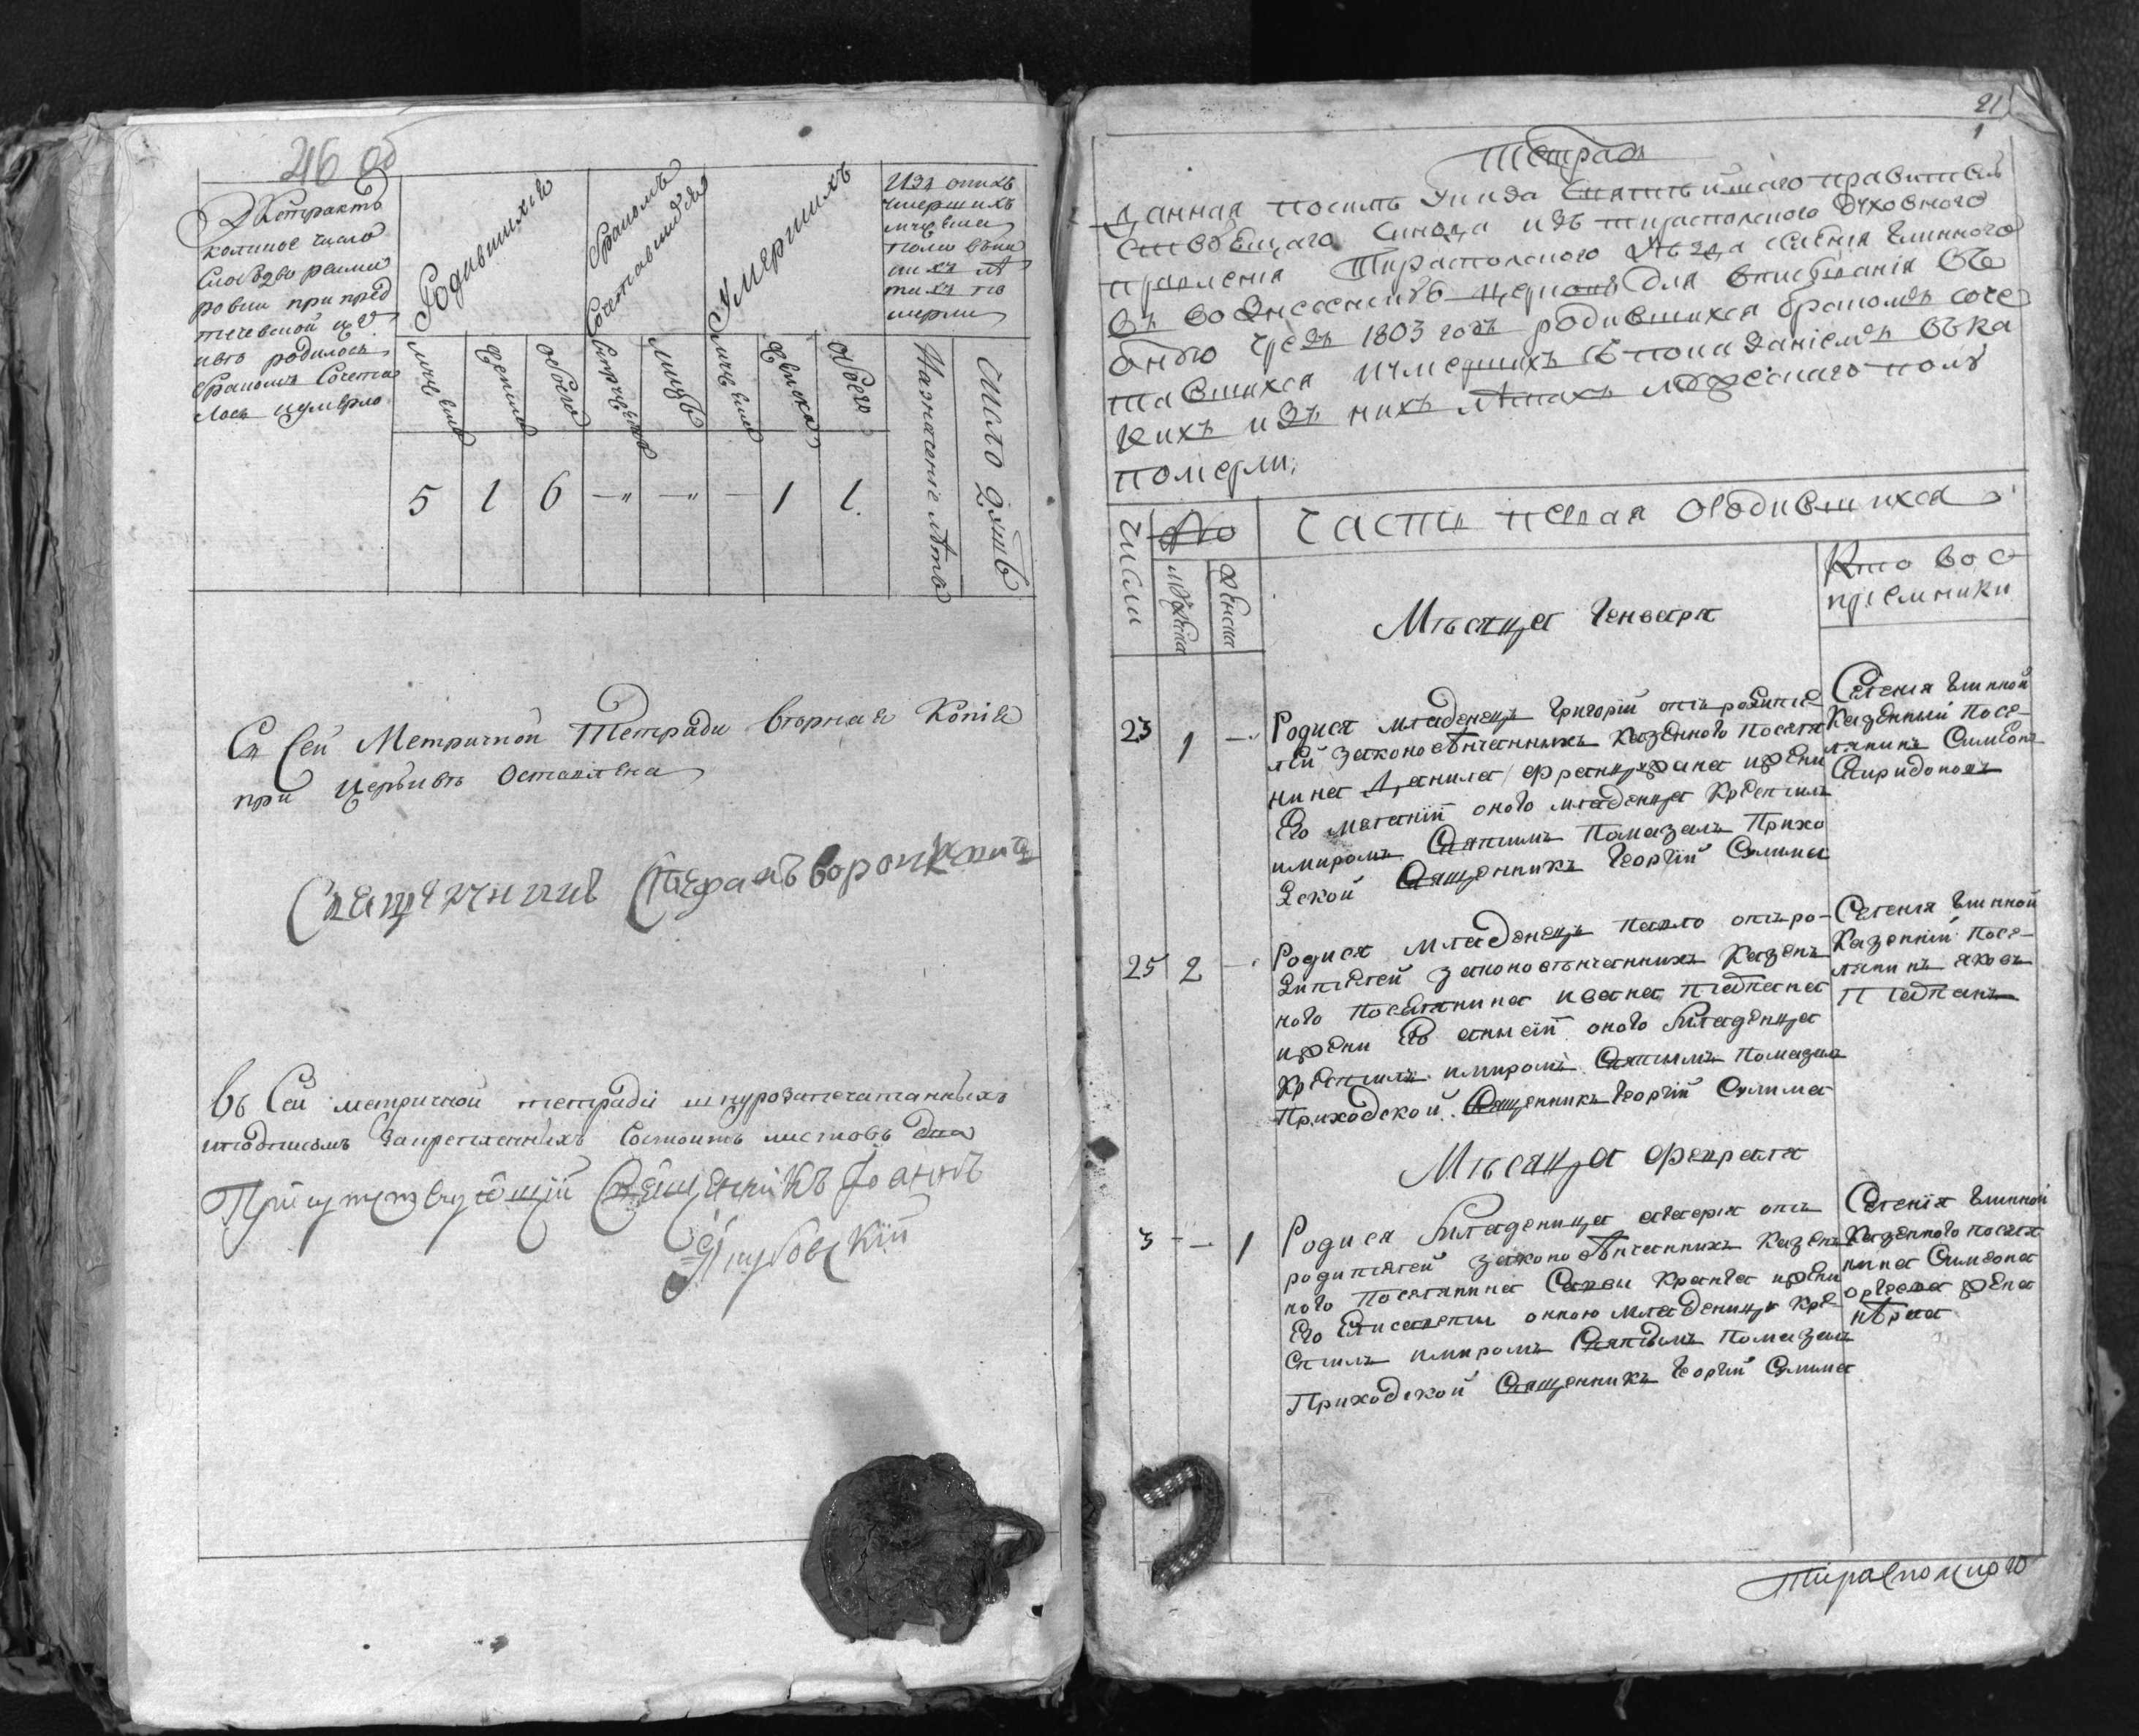 46 об
Экстрактъ
коликое число
ровки при пред
течевской це҃р
квѣ родилось
бракомъ Сочета
лось иумерло
Родившихся
бракомъ
Сочетавшихся
Умершихъ
Изъ онихъ
умершихъ
мужеска
полю
мужеска
женска
обоего
мужеска
женска
обоего
Назначение лѣтъ
Число душъ
5 1 6 —„ —„ — 1 1.
Съ Сей Метричной Тетради вторная Копія
при Церьквѣ Оставлена
Священникъ Стефанъ
въ Сей метричной тетради шнурозапечатанныхъ
иподписомъ Закрепленныхъ Состоитъ листовъ два
Присутствующій Священникъ Іоаннъ
21
1
Тетрадь
Данная посилѣ Указа Святѣйшаго правитель
ствующаго Синода изъ тираспольского духовного
правления Тираспольского уѣзда селения Глинного
въ вознесенскую церковь для вписыванія въ
оную чрезъ 1803 годъ родившихся бракомъ соче
тавшихся иумершихъ съ показаніемъ въка
кихъ изъ нихъ лѣтахъ мужескаго полу
померли,
Числи
№
мужеска
женска
Часть первая Ородившихся
Кто вос
приемники
Мѣсяца Генваря
23 1 —
Родися младенецъ Григорій отъ родите
лей законовѣнчанныхъ Казенного Поселя
нина Данила Францужана ижени
Его оного младенца Крестилъ
имиромъ Святимъ Помазалъ Прихо
дской Священникъ Георгій Сулима
Селения Глинной
Казенный Посе-
лянинъ Симеонъ
Спиридоновъ
25 2 —
Родися младенецъ Павло отъ ро-
дителей законовѣнчанихъ Казен
ного Поселянина ивана
ижени Его оного Младенца
Крестилъ имиромъ Святымъ Помазалъ
Приходской Священникъ Георгій Сулима
Селения Глинной
Казенній Посе-
лянинъ яковъ
Мѣсяца Февраля
3 — 1
Родися Младеница отъ
родителей законовѣнчаннихъ Казен
ного Поселянина Савви ижени
Его Елисавети онною младеницу Кре-
стилъ имиромъ Святымъ Помазалъ
Приходской Священникъ Георгій Сулима
Селенія Глинной
Казенного поселя
нина Симеона
жена
Тираспольского